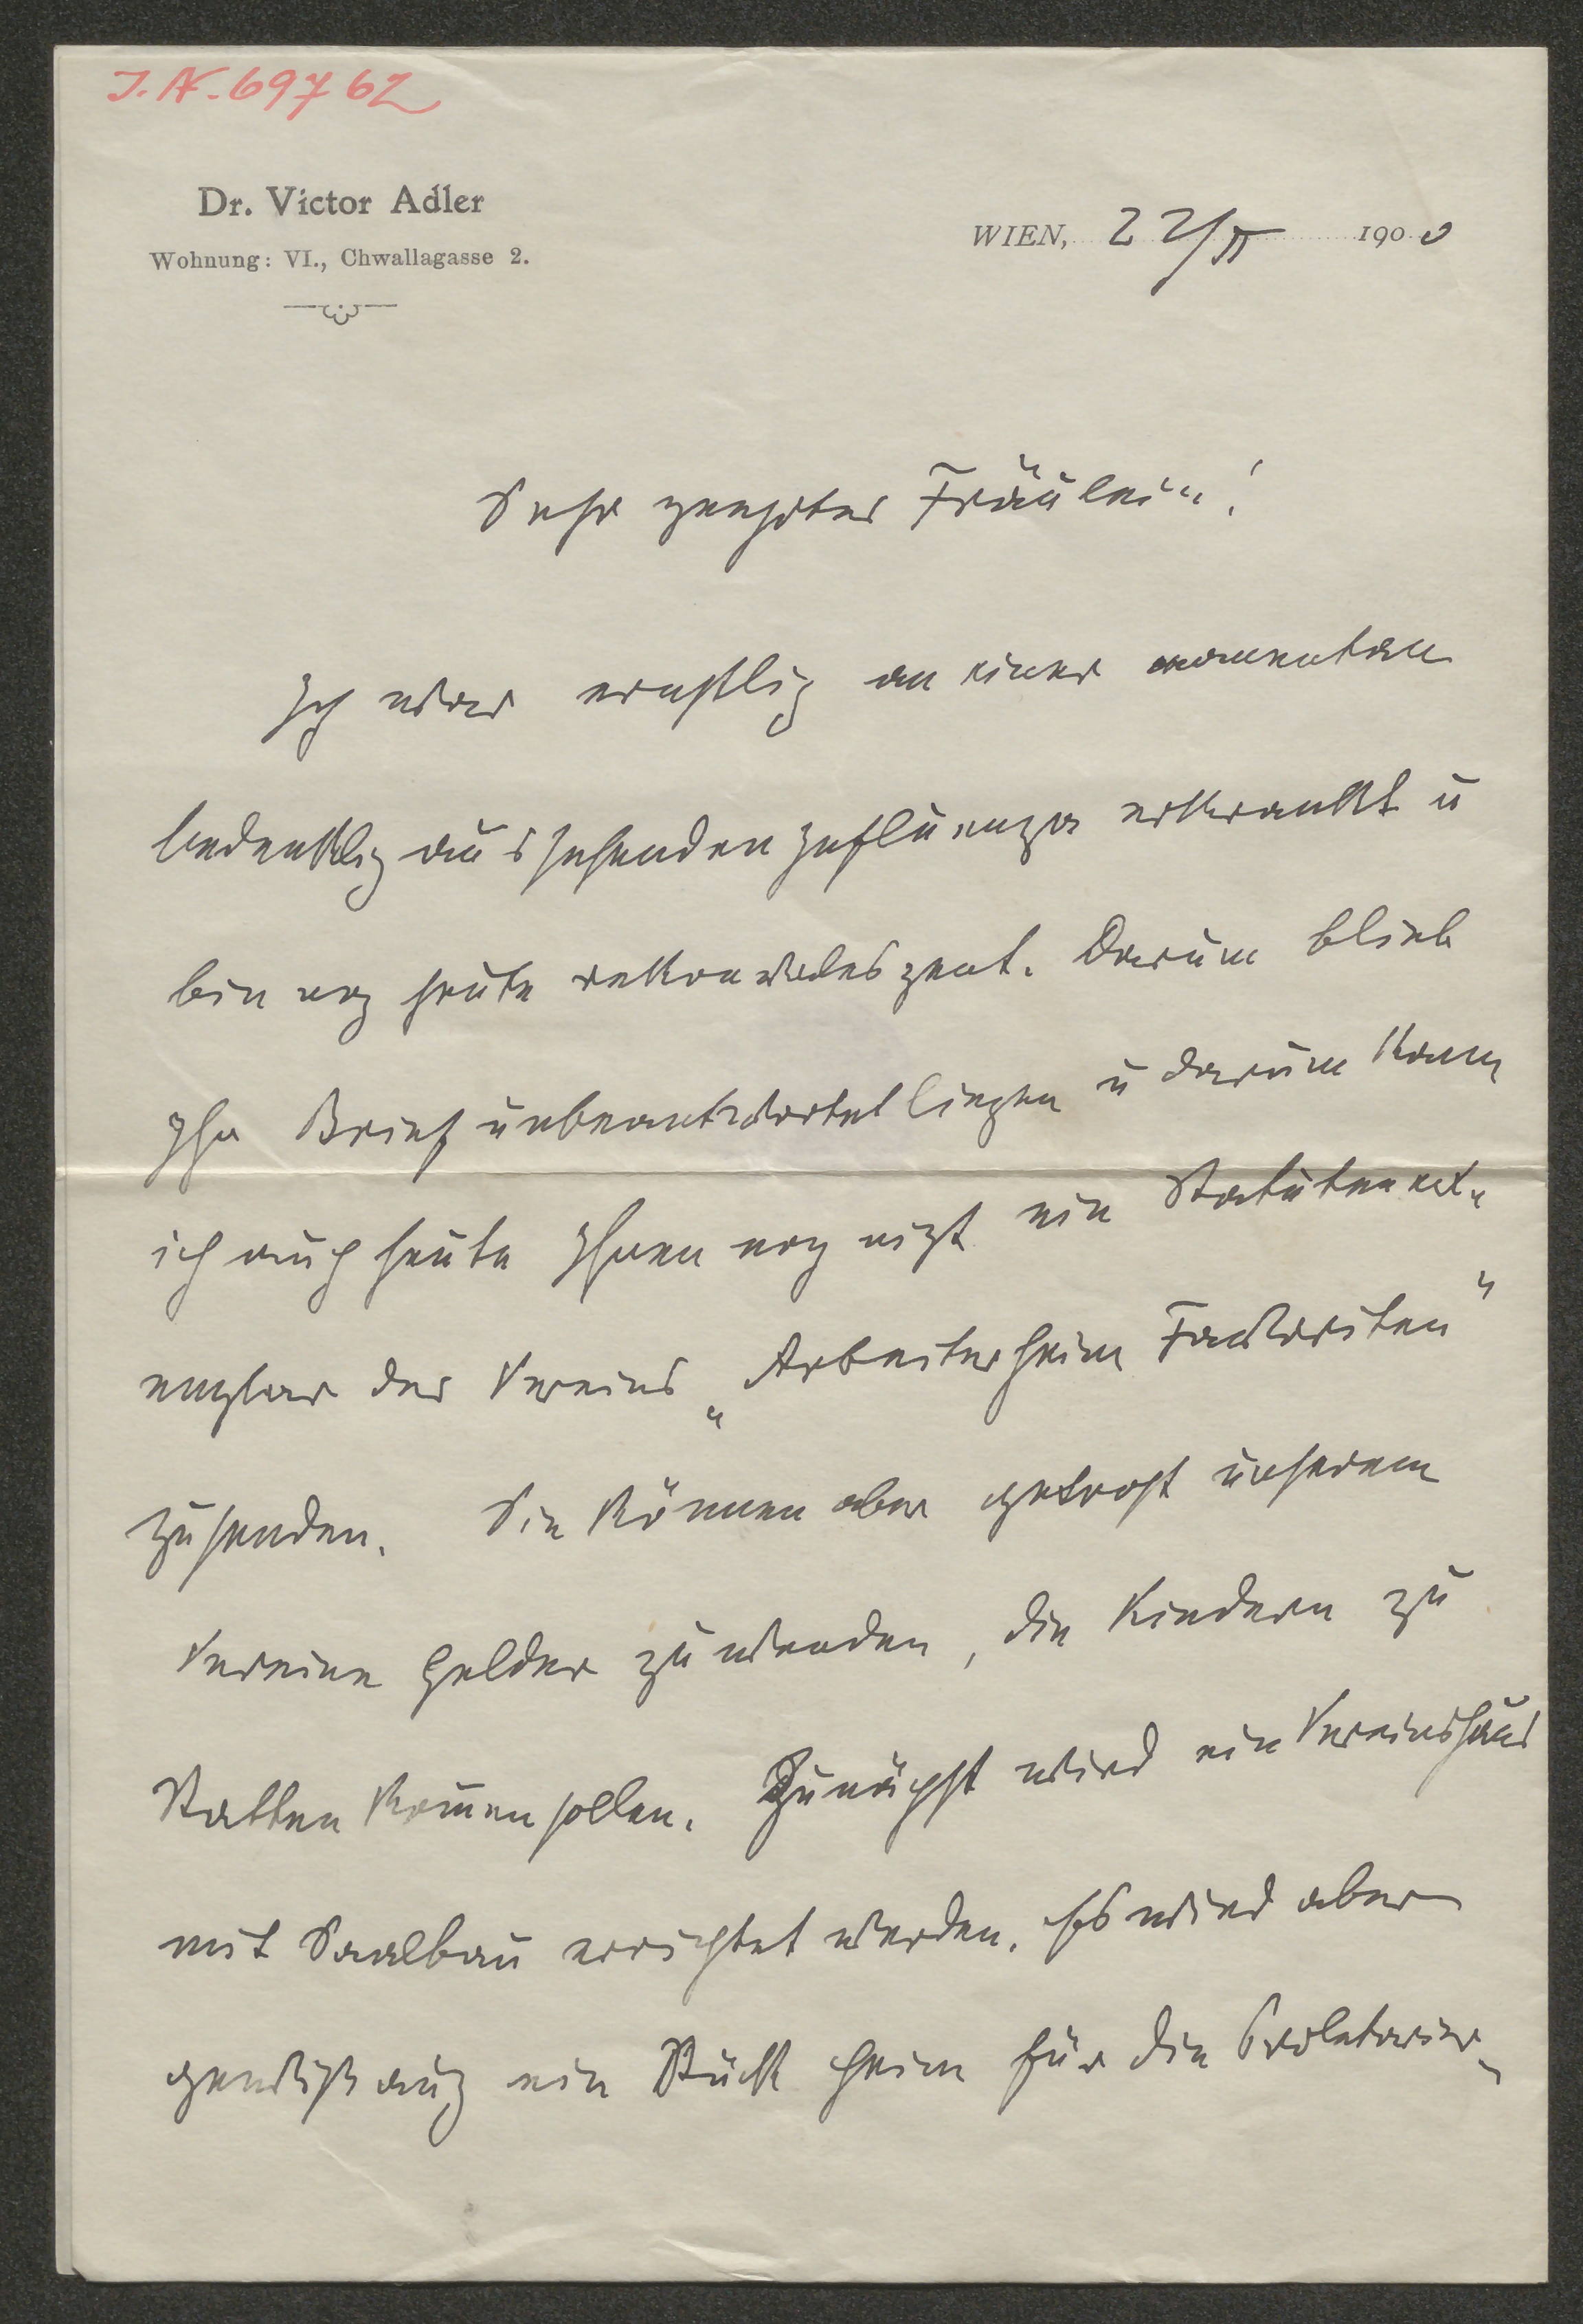 J.N. 69762
Dr. Victor Adler
Wohnung: VI., Chwallagasse 2.
WIEN, 22/II 1900
Sehr geehrtes Fräulein!
Ich war ernstlich an einer momentan
bedenklich aussehenden Influenza erkrankt u
bin noch heute rekonvaleszent. Darum blieb
Ihr Brief unbeantwortet liegen u darum kann
ich auch heute Ihnen noch nicht ein Statutenex-
emplar des Vereins „Arbeiterheim Favoriten"
zusenden. Sie können aber getrost unserem
Vereine Gelder zuwenden, die Kindern zu
Statten kom̄en sollen. Zunächst wird ein Vereinshaus
mit Saalbau errichtet werden. Es wird aber
gewiß auch ein Stück Heim für die Proletarier-